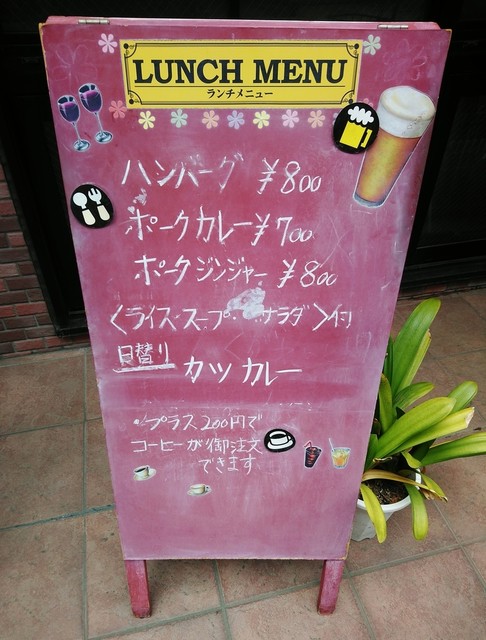 LUNCH MENU
ランチメニュー
ハンバーグ ¥800
ポークカレー¥700
ポークジンジャー ¥800
〈ライス・スープ・サラダ〉付
日替り カツカレー
・プラス200円で
コーヒーが御注文
できます